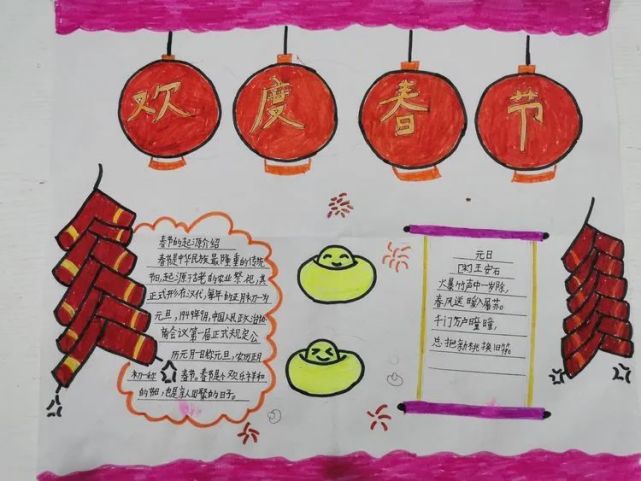 欢度春节
春节的起源介绍
春节是中华民族最隆重的传统
节日,起源于古老的农业祭祀,其
正式形成在汉代,每年的正月初一为
元旦,1949年9月,中国人民政治协
商会议第一届正式规定公
历元月一日称元旦,农历正月
初一称 春节。春节是个欢乐祥和
的节日,也是亲人团聚的日子。
元日
[宋]王安石
火暴竹声中一岁除,
春风送暖入屠苏。
千门万户曈曈,
总把新桃换旧符。